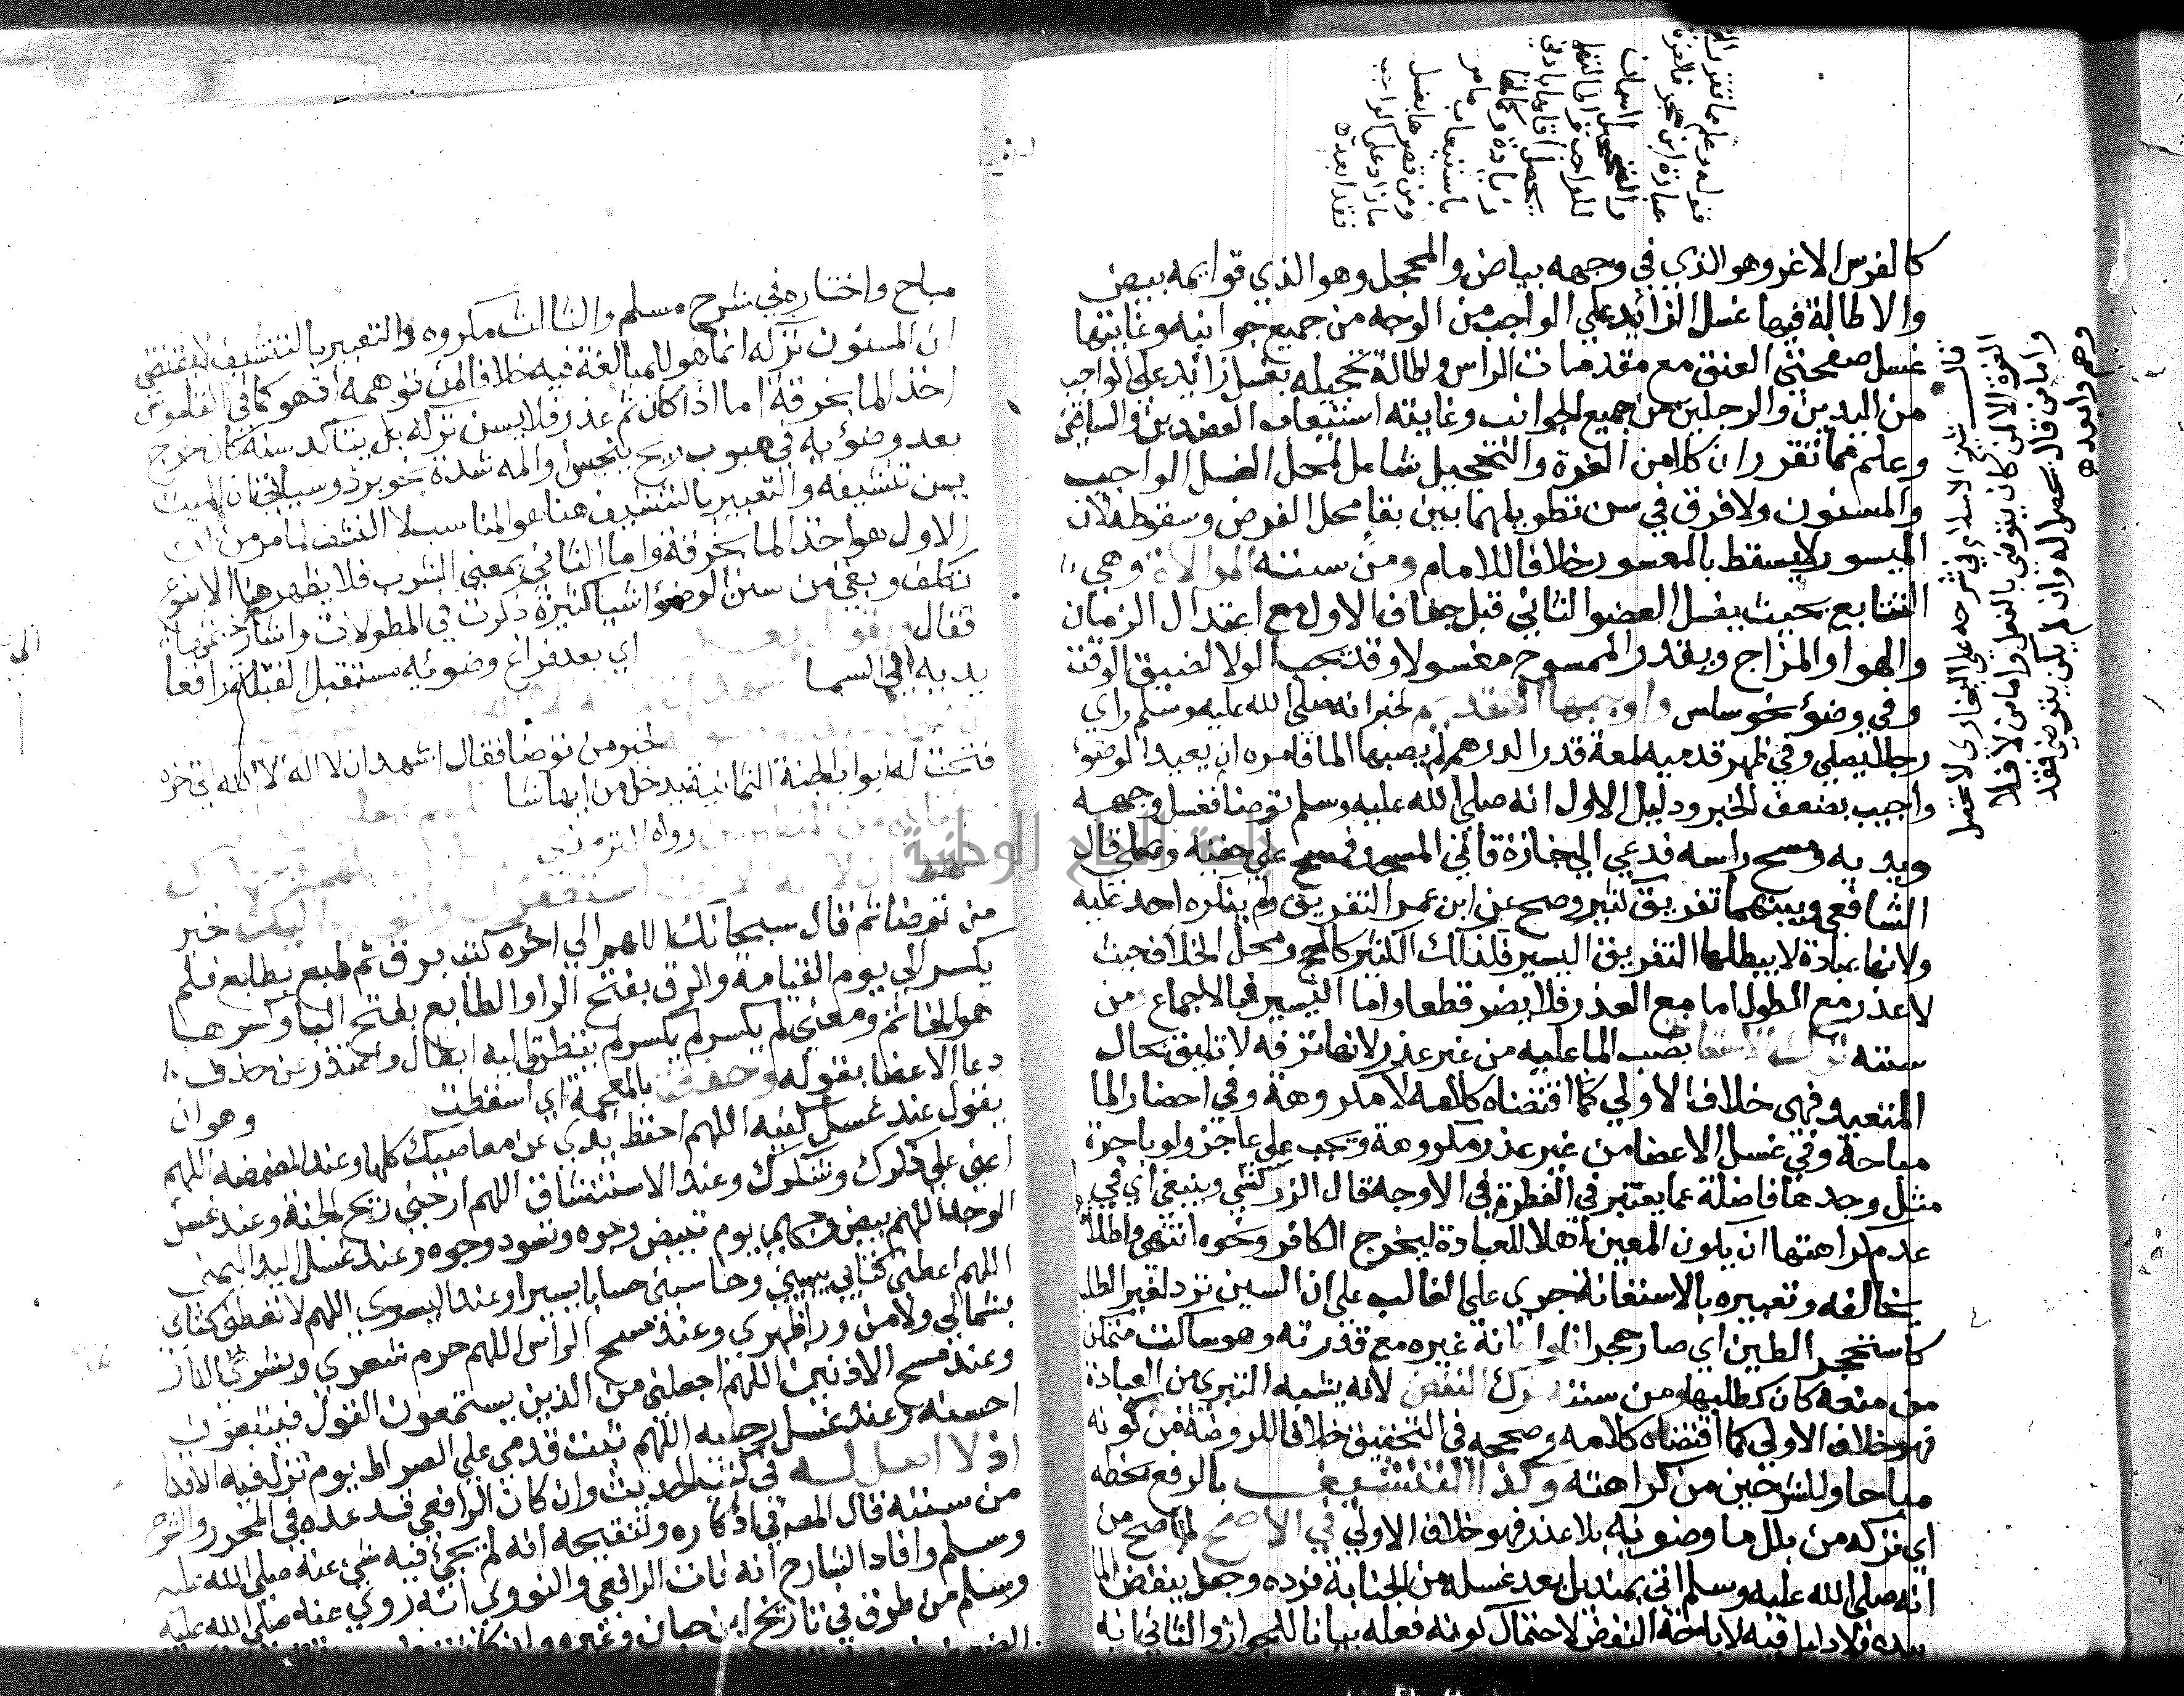 كالفرس الاغر وهو الذي في وجهه بياض والمحجل وهو الذي قوايمه بيض
والاطالة فيها غسل الزائد علي الواجب من الوجه من جميع جوانبه وغايتها
غسل صفحتي العنق مع مقدمات الراس واطالة تحجيله بغسل زائد علي الواجب
من اليدين والرجلين من جميع الجوانب وغايته استيعاب العضدين والساقين
وعلم مما تقرر ان كلا من الغرة والتحجيل شامل لمحل الغسل الواجب
والمسنون ولا فرق في سن تطويلهما بين بقا محل الفرض وسقوطه لان
الميسور لا يسقط بالمعسور خلافا للامام ومن سننه الموالاة وهي
التتابع بحيث يغسل العضو الثاني قبل جفاف الاول مع اعتدال الزمان
والهوا والمزاج ويقدر الممسوح مغسولا وقد تجب الولا لضيق الوقت
وفي وضوء نحو سلس واوجبها القديم لخبر انه صلي الله عليه وسلم راي
رجلا يصلي وفي ظهر قدميه لمعة قدر الدرهم لم يصبها الما فامره ان يعيد الوضوء
واجيب بضعف الخبر ودليل الاول انه صلي الله عليه وسلم توضا فغسل وجهه
ويديه ومسح راسه فدعي الي جنازة فاتي المسجد فمسح علي خفيه وصلي قال
الشافعي وبينهما تفريق كثير وصح عن ابن عمر التفريق ولم ينكره احد عليه
ولانها عبادة لا يبطلها التفريق اليسير فكذلك الكثير كالحج ومحل الخلاف حيث
لا عذر مع الطول اما مع العذر فلا يضر قطعا واما اليسير فبالاجماع ومن
سننه ترك الاستعانة بصب الما عليه من غير عذر لانها ترفه لا تليق بحال
المتعبد فهي خلاف الاولي كما اقتضاه كلامه لا مكروهة وفي احضار الما
مباحة وفي غسل الاعضا من غير عذر مكروهة وتجب علي عاجز ولو باجرة
مثل وجدها فاضلة عما يعتبر في الفطرة في الاوجه قال الزركشي وينبغي اي في
عدم كراهتها ان يكون المعين اهلا للعبادة ليخرج الكافر ونحوه انتهي واطلاقهم
يخالفه وتعبيره بالاستعانة جري علي الغالب علي ان السين ترد لغير الطلب
كاستحجر الطين اي صار حجرا فلو اعانه غيره مع قدرته وهو ساكت متمكن
من منعه كان كطلبها ومن سننه ترك النفض لانه يشبه التبري من العبادة
فهو خلاف الاولي كما اقتضاه كلامه وصححه في التحقيق خلافا للروضة من كونه
مباحا وللشرحين من كراهته وكذا التنشيف بالرفع بخطه
اي تركه من بلل ما وضوئه بلا عذر فهو خلاف الاولي في الاصح لما صح من
انه صلي الله عليه وسلم اتي بمنديل بعد غسله من الجنابة فرده وجعل ينفض الما
بيده ولا دليل فيه لاباحة النفض لاحتمال كونه فعله بيانا للجواز والثاني انه
قال شيخ الاسلام في شرحه علي البخاري لا تحصل
الغرة الا لمن كان يتوضي بالفعل واما من لا فلا
واما من قال يحصل له وان لم يكن يتوضي فقد
وهم وابعده
قوله وعلم مما تقرر
عبارة ابن حجر
والتحجيل اسمان
للواجب
يحصل اقلها بادني
زيادة وكمالها
باستيعاب ما مر
ومن قصرها بغسل
ما زاد علي الواجب
فقد ابعده
مباح واختاره في شرح مسلم والثالث مكروه والتعبير بالتنشيف لا يقتضي
ان المسنون تركه انما هو للمبالغة فيه خلافا لمن توهمه اذ هو كما في القاموس
اخذ الما بخرقة اما اذا كان ثم عذر فلا يسن تركه بل يتاكد سنه كان خرج
بعد وضوئه في هبوب ريح بنجس او المه شدة نحو برد وسياتي ان الميت
يسن تنشيفه والتعبير بالتنشيف هنا هو المناسب لا النشف لما مر من ان
الاول هو اخذ الما بخرقة واما الثاني بمعني الشرب فلا يظهر هنا الا بنوع
تكلف وبقي من سنن الوضوء اشيا كثيرة ذكرت في المطولات واشار
فقال ويقول بعده اي بعد فراغ وضوئه مستقبل القبلة رافعا
يديه الي السما
لخبر من توضا فقال اشهد ان لا اله الا الله الي اخره
فتحت له ابواب الجنة الثمانية يدخل من ايها شا
رواه الترمذي
استغفرك واتوب اليك خبر
من توضا ثم قال سبحانك اللهم الي اخره كتب برق ثم طبع بطابع فلم
يكسر الي يوم القيامة والرق بفتح الرا والطابع بفتح البا وكسرها
هو الخاتم ومعني لم يكسر لم يتطرق اليه ابطال واعتذر عن حذف
دعا الاعضا بقوله وحذفت بالمعجمة اي اسقطت وهو ان
يقول عند غسل كفيه اللهم احفظ يدي عن معاصيك كلها وعند المضمضه اللهم
اعني علي ذكرك وشكرك وعند الاستنشاق اللهم ارحني ريح الجنة وعند غسل
الوجه اللهم بيض وجهي يوم تبيض وجوه وتسود وجوه وعند غسل اليد اليمني
اللهم اعطني كتابي بيميني وحاسبني حسابا يسيرا وعند اليسري اللهم لا تعطني كتابي
بشمالي ولا من ورا ظهري وعند مسح الراس اللهم حرم شعري وبشري علي النار
وعند مسح الاذنين اللهم اجعلني من الذين يستمعون القول فيتبعون
احسنه وعند غسل رجليه اللهم ثبت قدمي علي الصراط يوم تزل فيه الاقدام
اذ لا اصل له في كتب الحديث وان كان الرافعي قد عده في المحرر والشرح
من سننه قال المصنف في اذكاره وتنقيحه انه لم يجئ فيه شي عنه صلي الله عليه
وسلم وافاد الشارح انه فات الرافعي والنووي انه روي عنه صلي الله عليه
وسلم من طرق في تاريخ ابن حبان وغيره وان كانت